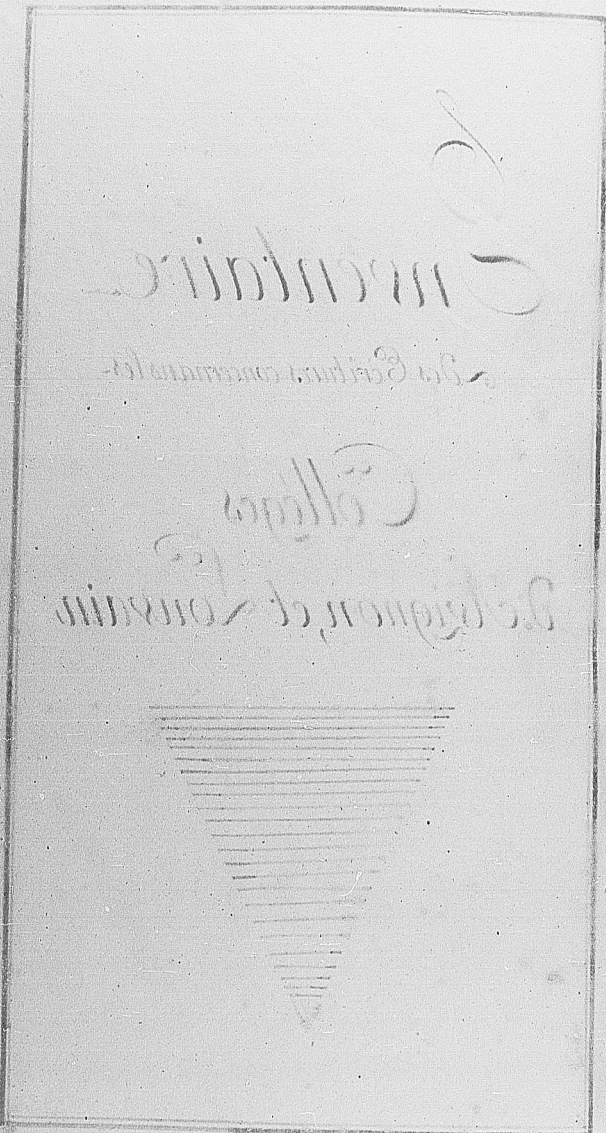 Inventaire
Des Ecritures concernans les
Collèges
D'Avignon, et Louvain